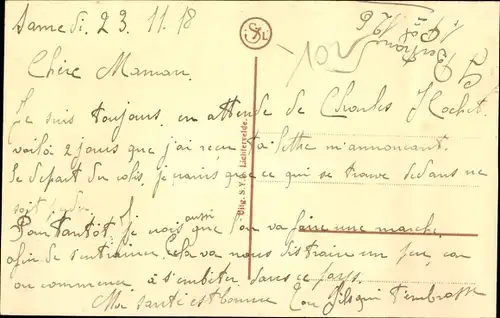 Samedi. 23. 11. 18
Chère Maman.
Je suis toujours en attende de Charles Hochet.
voilà 2 jours que j'ai reçu ta lettre m'annoncant.
le depart du colis, je crains que ce qui se trouve dedans ne
soit perdu.
Pourtantôt. Je vois aussi que l'on va faire une marche,
afin de s'entrainer. Cela va nous distraire un peu, car
on commence à s'embêter dans ce pays.
Ma santé est bonne Ton fils qui t'embrasse
102
SYL
Uitg. S.Y.L. Lichtervelde.